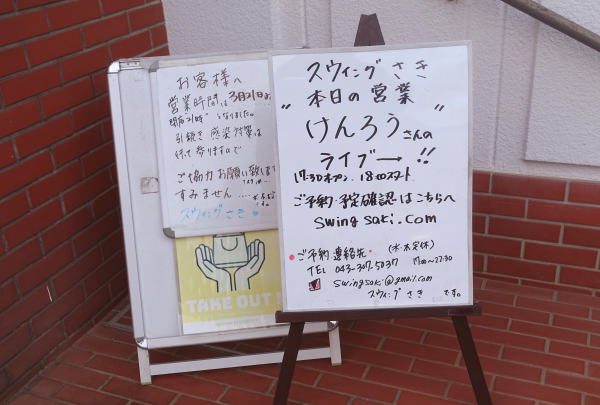 お客様へ
営業時間は3月21日より
"閉店21時"となりました。
引続き感染対策は
行って参りますので
ご協力お願い致します
すみません....
スウィングさき
TAKE OUT
スウィングさき
本日の営業
"けんろうさんの"
ライブ→!!
17:30オープン.18:00スタート
ご予約・予定確認はこちらへ
swingsaki.com
ご予約連絡先・(水・木定休)
TEL 043-307-5037 17:00〜22:30
swingsaki@gmail.com
スウィングさきです。